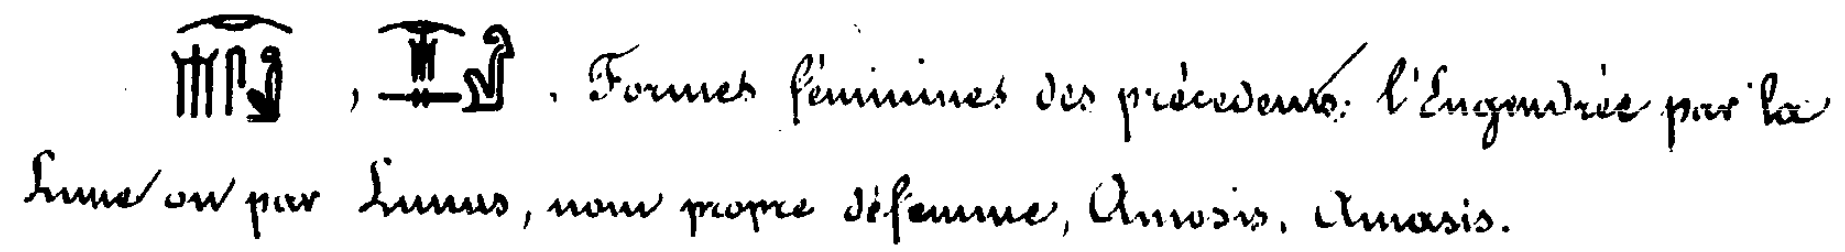 , . Formes féminines des précedents: l'Engendrée par la
Lune ou par Lunus, nom propre de femme, Amosis. Amasis.